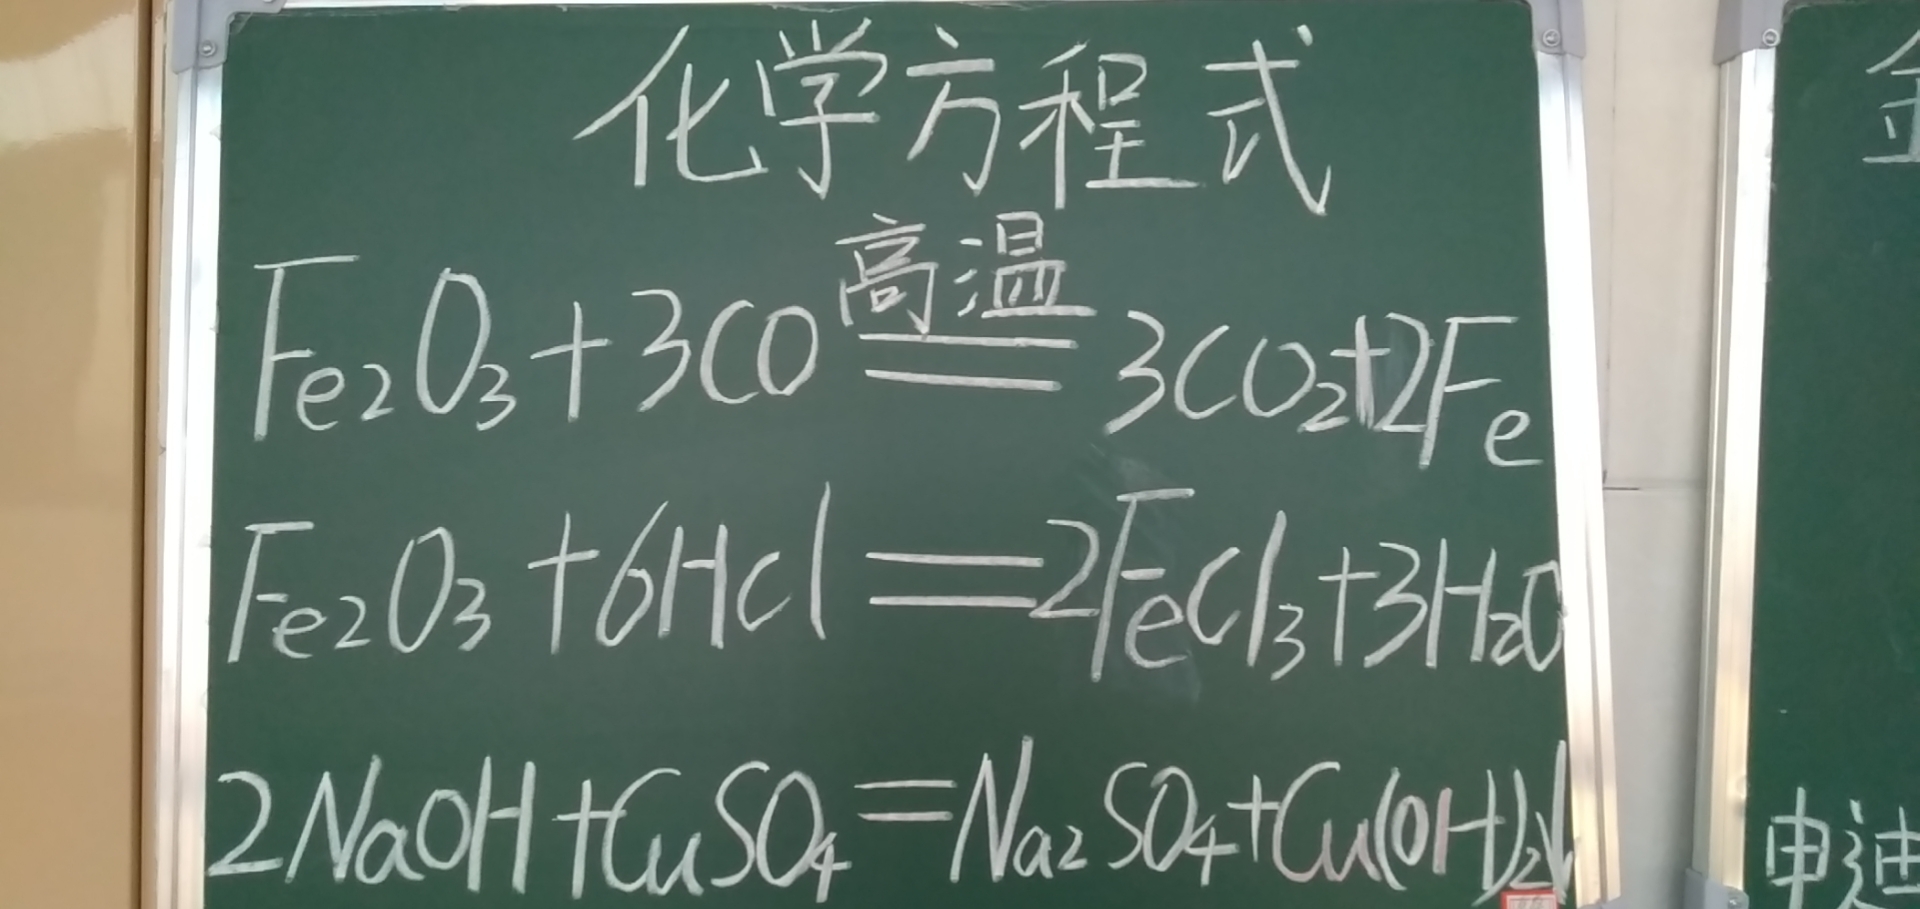 化学方程式
高温
Fe₂O₃+3CO══3CO₂+2Fe
Fe₂O₃+6HCl══2FeCl₃+3H₂O
2NaOH+CuSO₄══Na₂SO₄+Cu(OH)₂↓